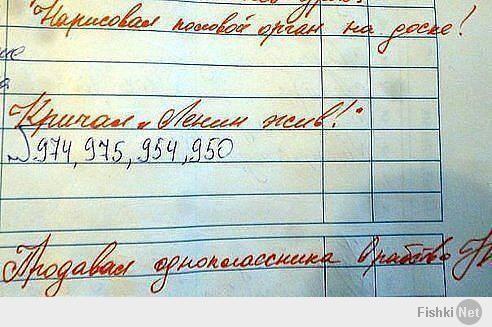 Нарисовал половой орган на доске!
ие
а
Кричал „Ленин жив!"
974, 975, 954, 950
Продавал одноклассника в рабство
Fishki Net